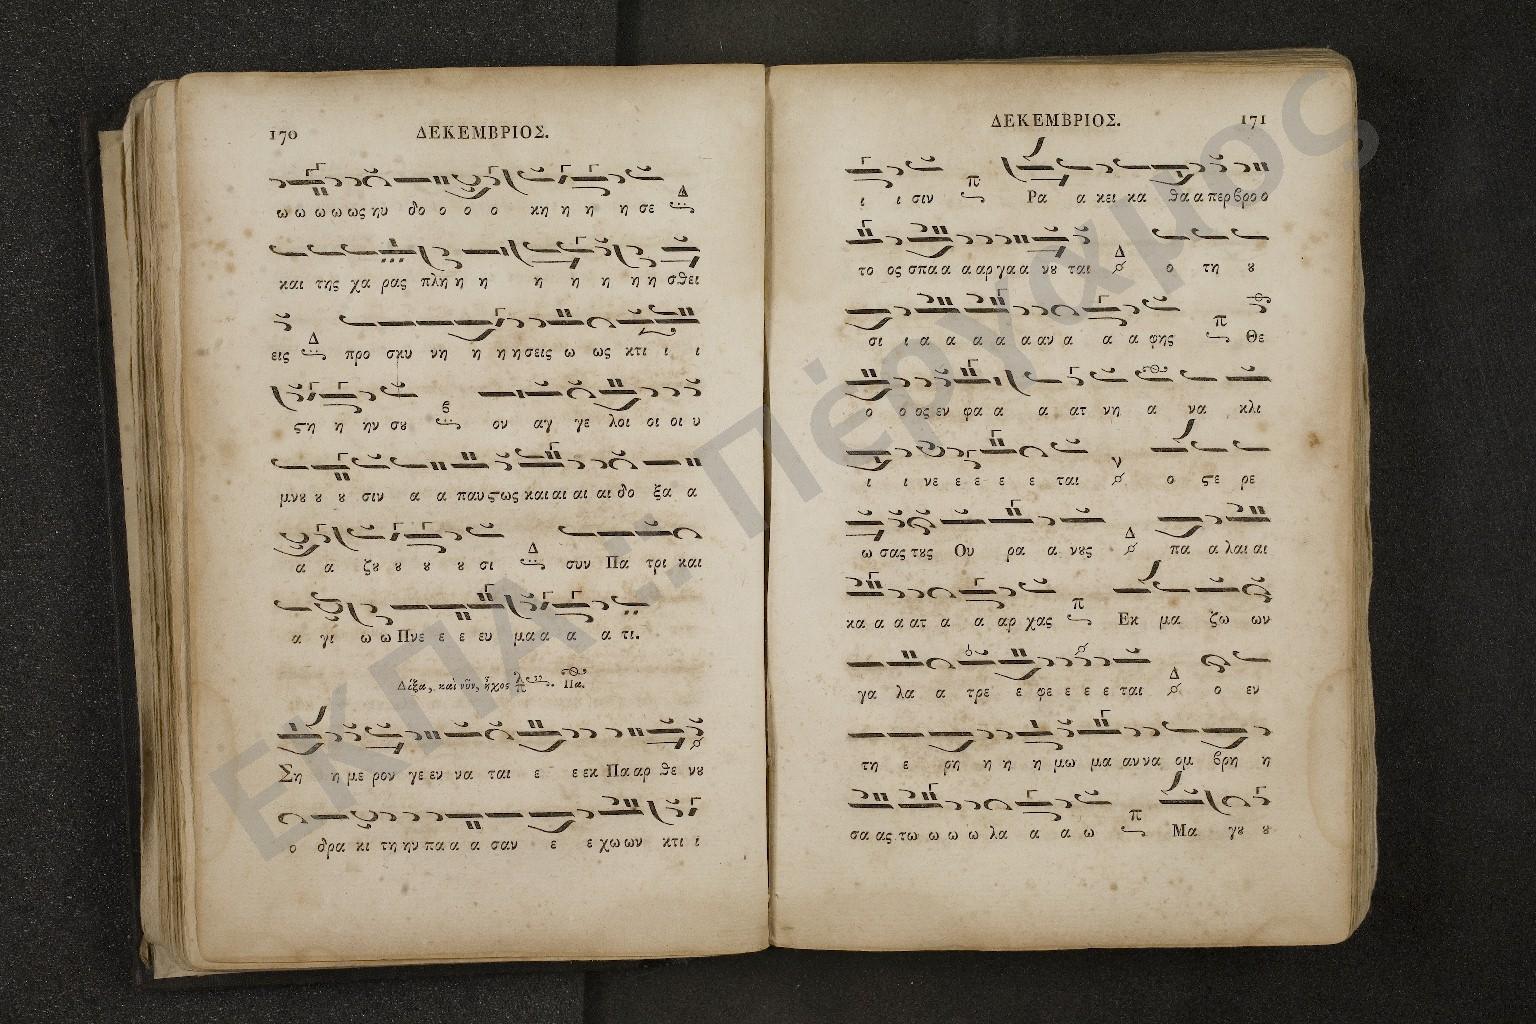 170
ΔΕΚΕΜΒΡΙΟΣ.
ω ω ω ω ως ην δο ο ο ο κη η η η σε
και της χα ρας πλη η η η η η η η σθει
εις προ σκυ νη η η η σεις ω ως κτι ι ι
ϛη η ην σȣ ον αγ γε λοι οι οι υ
μνȣ ȣ ȣ σιν α α παυ ϛως και αι αι αι δο ξα α
α α ζȣ ȣ ȣ ȣ σι συν Πα τρι και
α γι ω ω Πνε ε ε ευ μα α α α τι.
Δόξα, καὶ νῦν, ἦχος Πα.
Ση η με ρον γε εν να ται ε ε εκ Πα αρ θε νȣ
ο δρα κι τη ην πα α α σαν ε ε χω ων κτι ι
ΔΕΚΕΜΒΡΙΟΣ.
171
ι ι σιν Ρα α κει κα θα α περ βρο ο
το ος σπα α α αρ γα α νȣ ται ο τη ȣ
σι ι α α α α α αν α α α φης Θε
ο ο ος εν φα α α ατ νη α να κλι
ι ι νε ε ε ε ε ται ο ϛε ρε
ω σας τȣς Ου ρα α νȣς πα α λαι αι
κα α α ατ α α αρ χας Εκ μα ζω ων
γα λα α τρε ε φε ε ε ε ται ο εν
τη ε ρη η η η μω μα αν να ομ βρη η
σα ας τω ω ω ω λα α α ω Μα γȣ ȣ
ΕΚΠΑ :: Πέργαμος